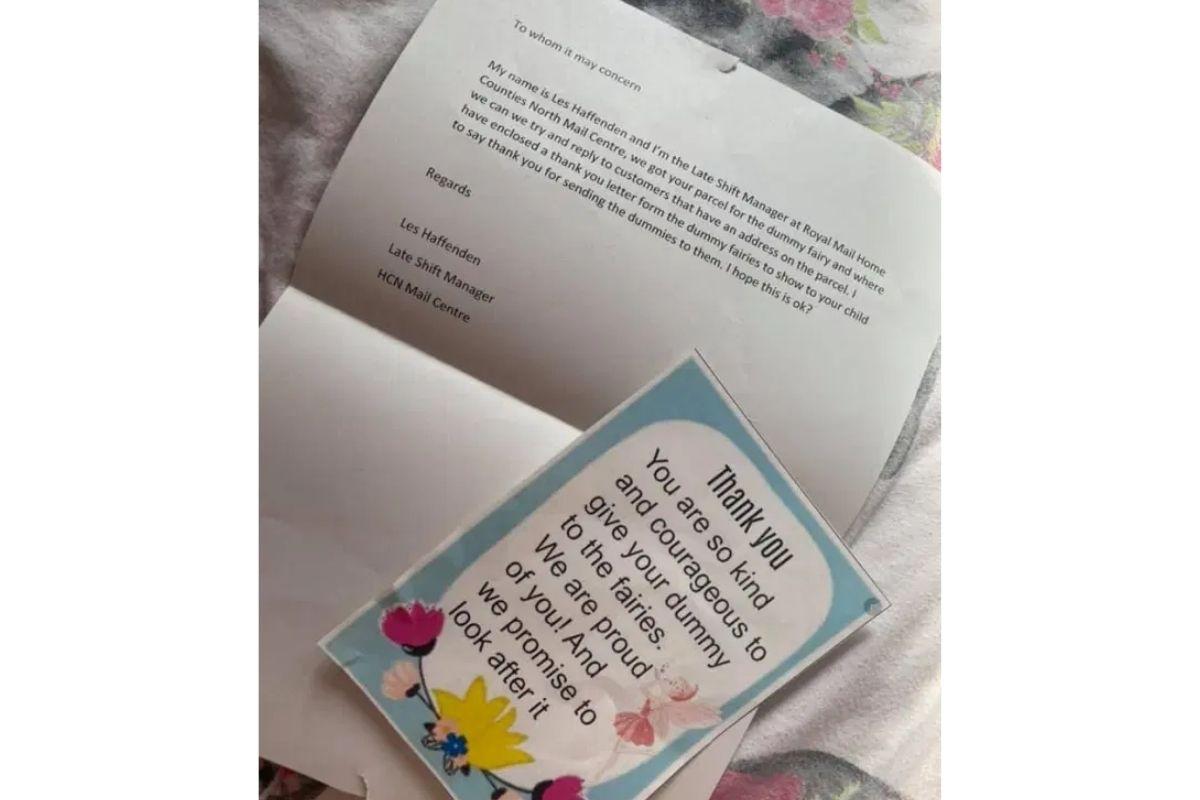 To whom it may concern
My name is Les Haffenden and I'm the Late Shift Manager at Royal Mail Home
Counties North Mail Centre, we got your parcel for the dummy fairy and where
we can we try and reply to customers that have an address on the parcel. I
have enclosed a thank you letter form the dummy fairies to show to your child
to say thank you for sending the dummies to them. I hope this is ok?
Regards
Les Haffenden
Late Shift Manager
HCN Mail Centre
Thank you
You are so kind
and courageous to
give your dummy
to the fairies.
We are proud
of you! And
we promise to
look after it